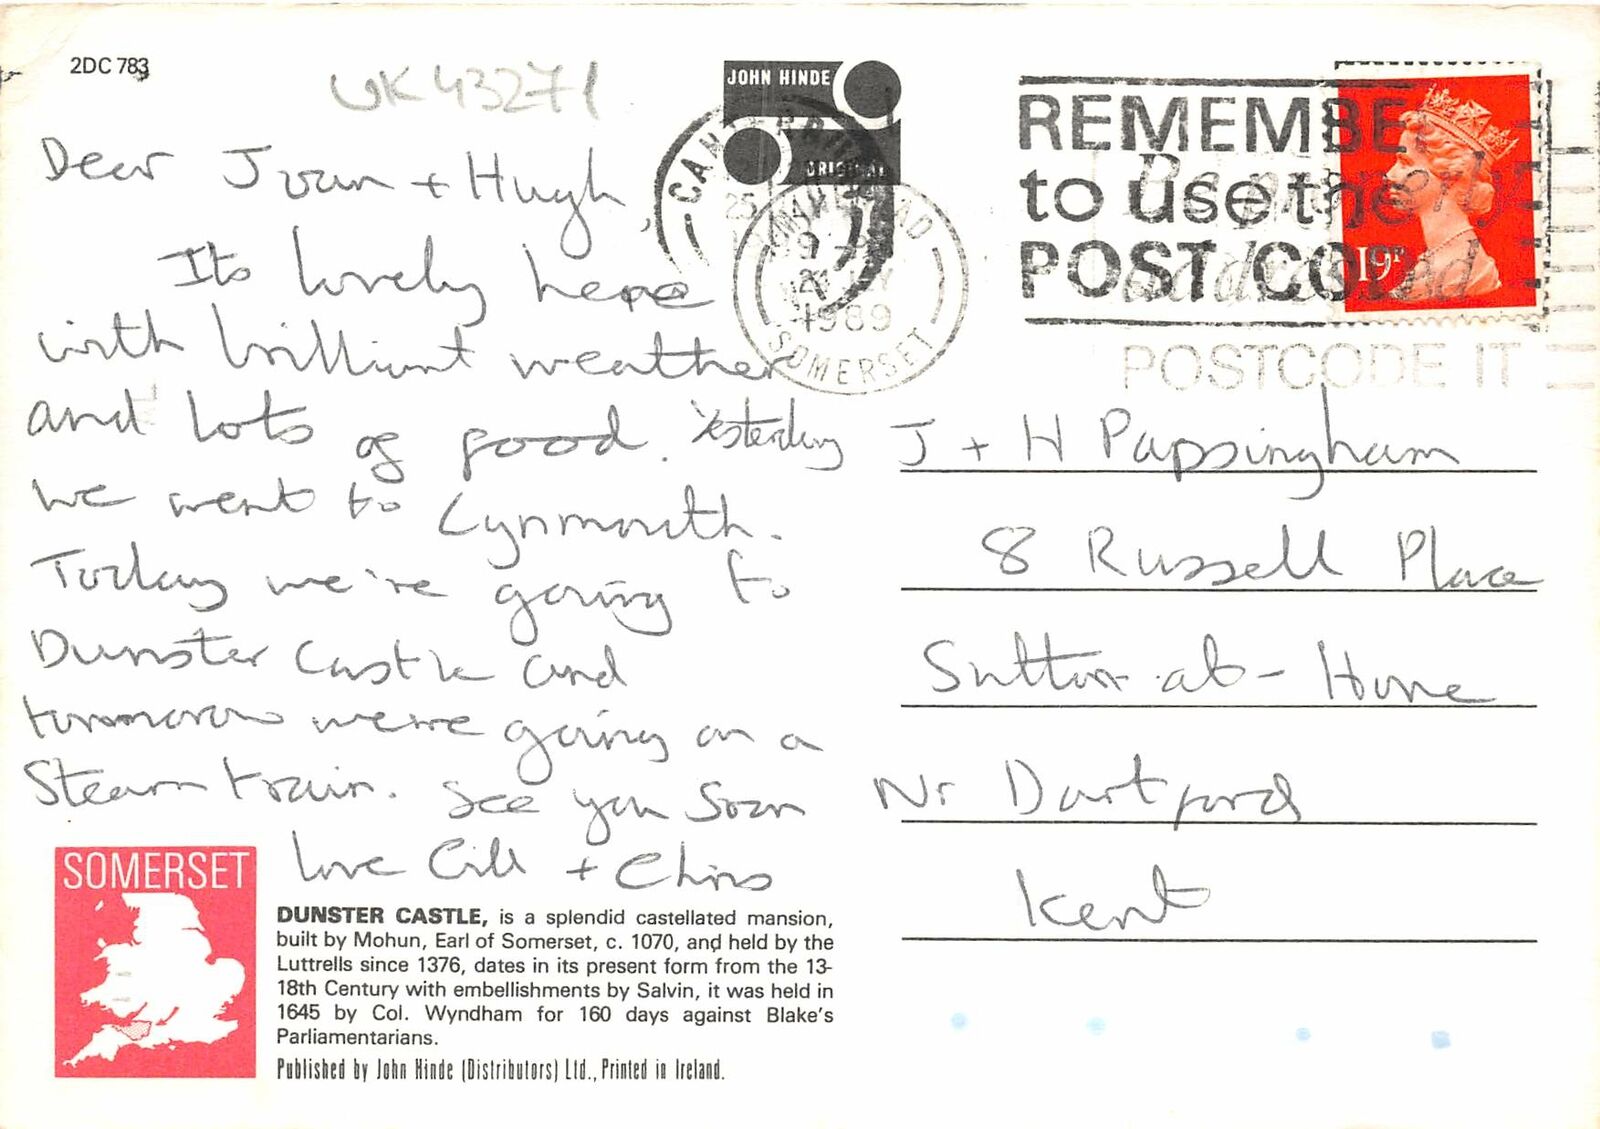 2DC 783
UK43271
JOHN HINDE
ORIGINAL
Dear Joan + Hugh,
Its lovely here
with brilliant weather
and lots of good. Yesterday
we went to Lynmouth.
Today we're going to
Dunster Castle and
tomorrow we're going on a
Steam train. See you soon
love Gill + Chris
SOMERSET
DUNSTER CASTLE, is a splendid castellated mansion,
built by Mohun, Earl of Somerset, c. 1070, and held by the
Luttrells since 1376, dates in its present form from the 13-
18th Century with embellishments by Salvin, it was held in
1645 by Col. Wyndham for 160 days against Blake's
Parliamentarians.
Published by John Hinde (Distributors) Ltd., Printed in Ireland.
CANTERBURY
25
MINEHEAD
MAY
1989
SOMERSET
REMEMBER
to use the
POST CODE
Be properly
addressed
POSTCODE IT
19P
J + H Papsingham
8 Russell Place
Sutton-at-Hone
Nr Dartford
Kent